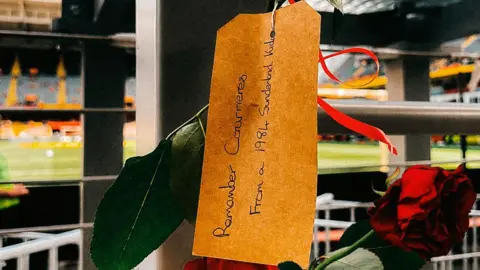 Remember Cawmeras
From a 1984 Sunderland Kid